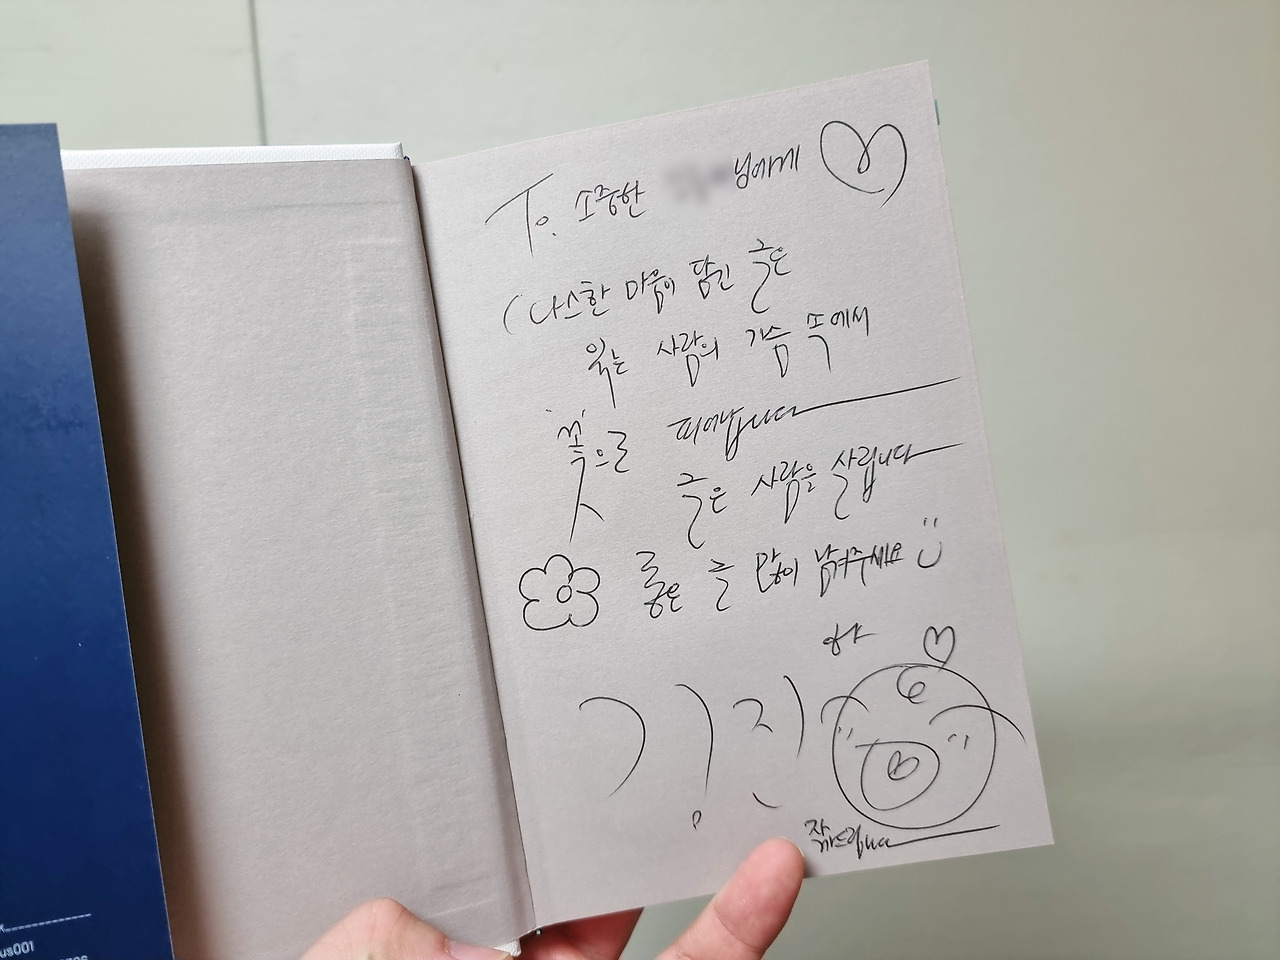 To. 소중한 님에게
따스한 마음이 담긴 글은
읽는 사람의 가슴 속에서
꽃으로 피어납니다
글은 사람을 살립니다
좋은 글 많이 남겨주세요
us001